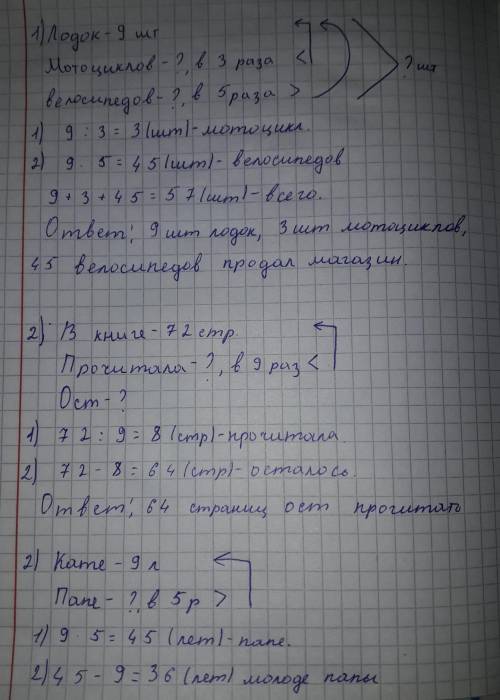 1) Лодок - 9 шт
Мотоциклов - ?, в 3 раза <
велосипедов - ?, в 5 раза >
? шт
1) 9 : 3 = 3 (шт) - мотоцикл.
2) 9 · 5 = 45 (шт) - велосипедов
9 + 3 + 45 = 57 (шт) - всего.
Ответ: 9 шт лодок, 3 шт мотоциклов,
45 велосипедов продал магазин.
2) В книге - 72 стр.
Прочитала - ?, в 9 раз <
Ост - ?
1) 72 : 9 = 8 (стр) - прочитала.
2) 72 - 8 = 64 (стр) - осталось.
Ответ: 64 страниц ост прочитать
2) Кате - 9 л
Папе - ? в 5 р >
1) 9 · 5 = 45 (лет) - папе.
2) 45 - 9 = 36 (лет) молоде папы